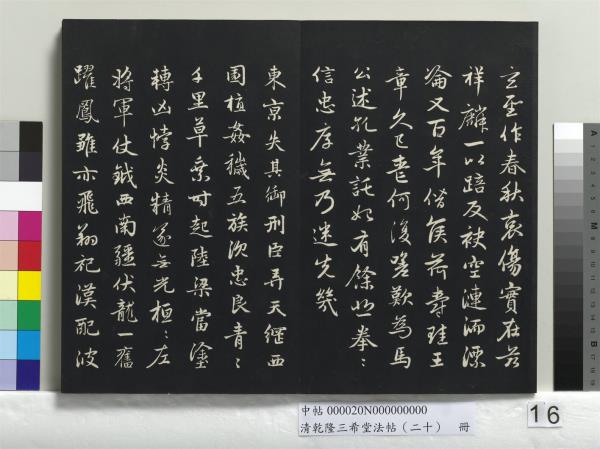 玄聖作春秋哀傷實在茲
祥麟一以踣反袂空漣洏漂
淪又百年僭侯荷爵珪王
章久已喪何復嗟歎為馬
公述孔業託始有餘悲拳〻
信忠厚無乃迷先幾
東京失其御刑臣弄天綱西
園植姦穢五族沈忠良青〻
千里草乘時起陸梁當塗
轉凶悖炎精遂無光桓〻左
將軍仗鉞西南疆伏龍一奮
躍鳳雛亦飛翔祀漢配彼
中帖 000020N000000000
清乾隆三希堂法帖（二十） 冊
16